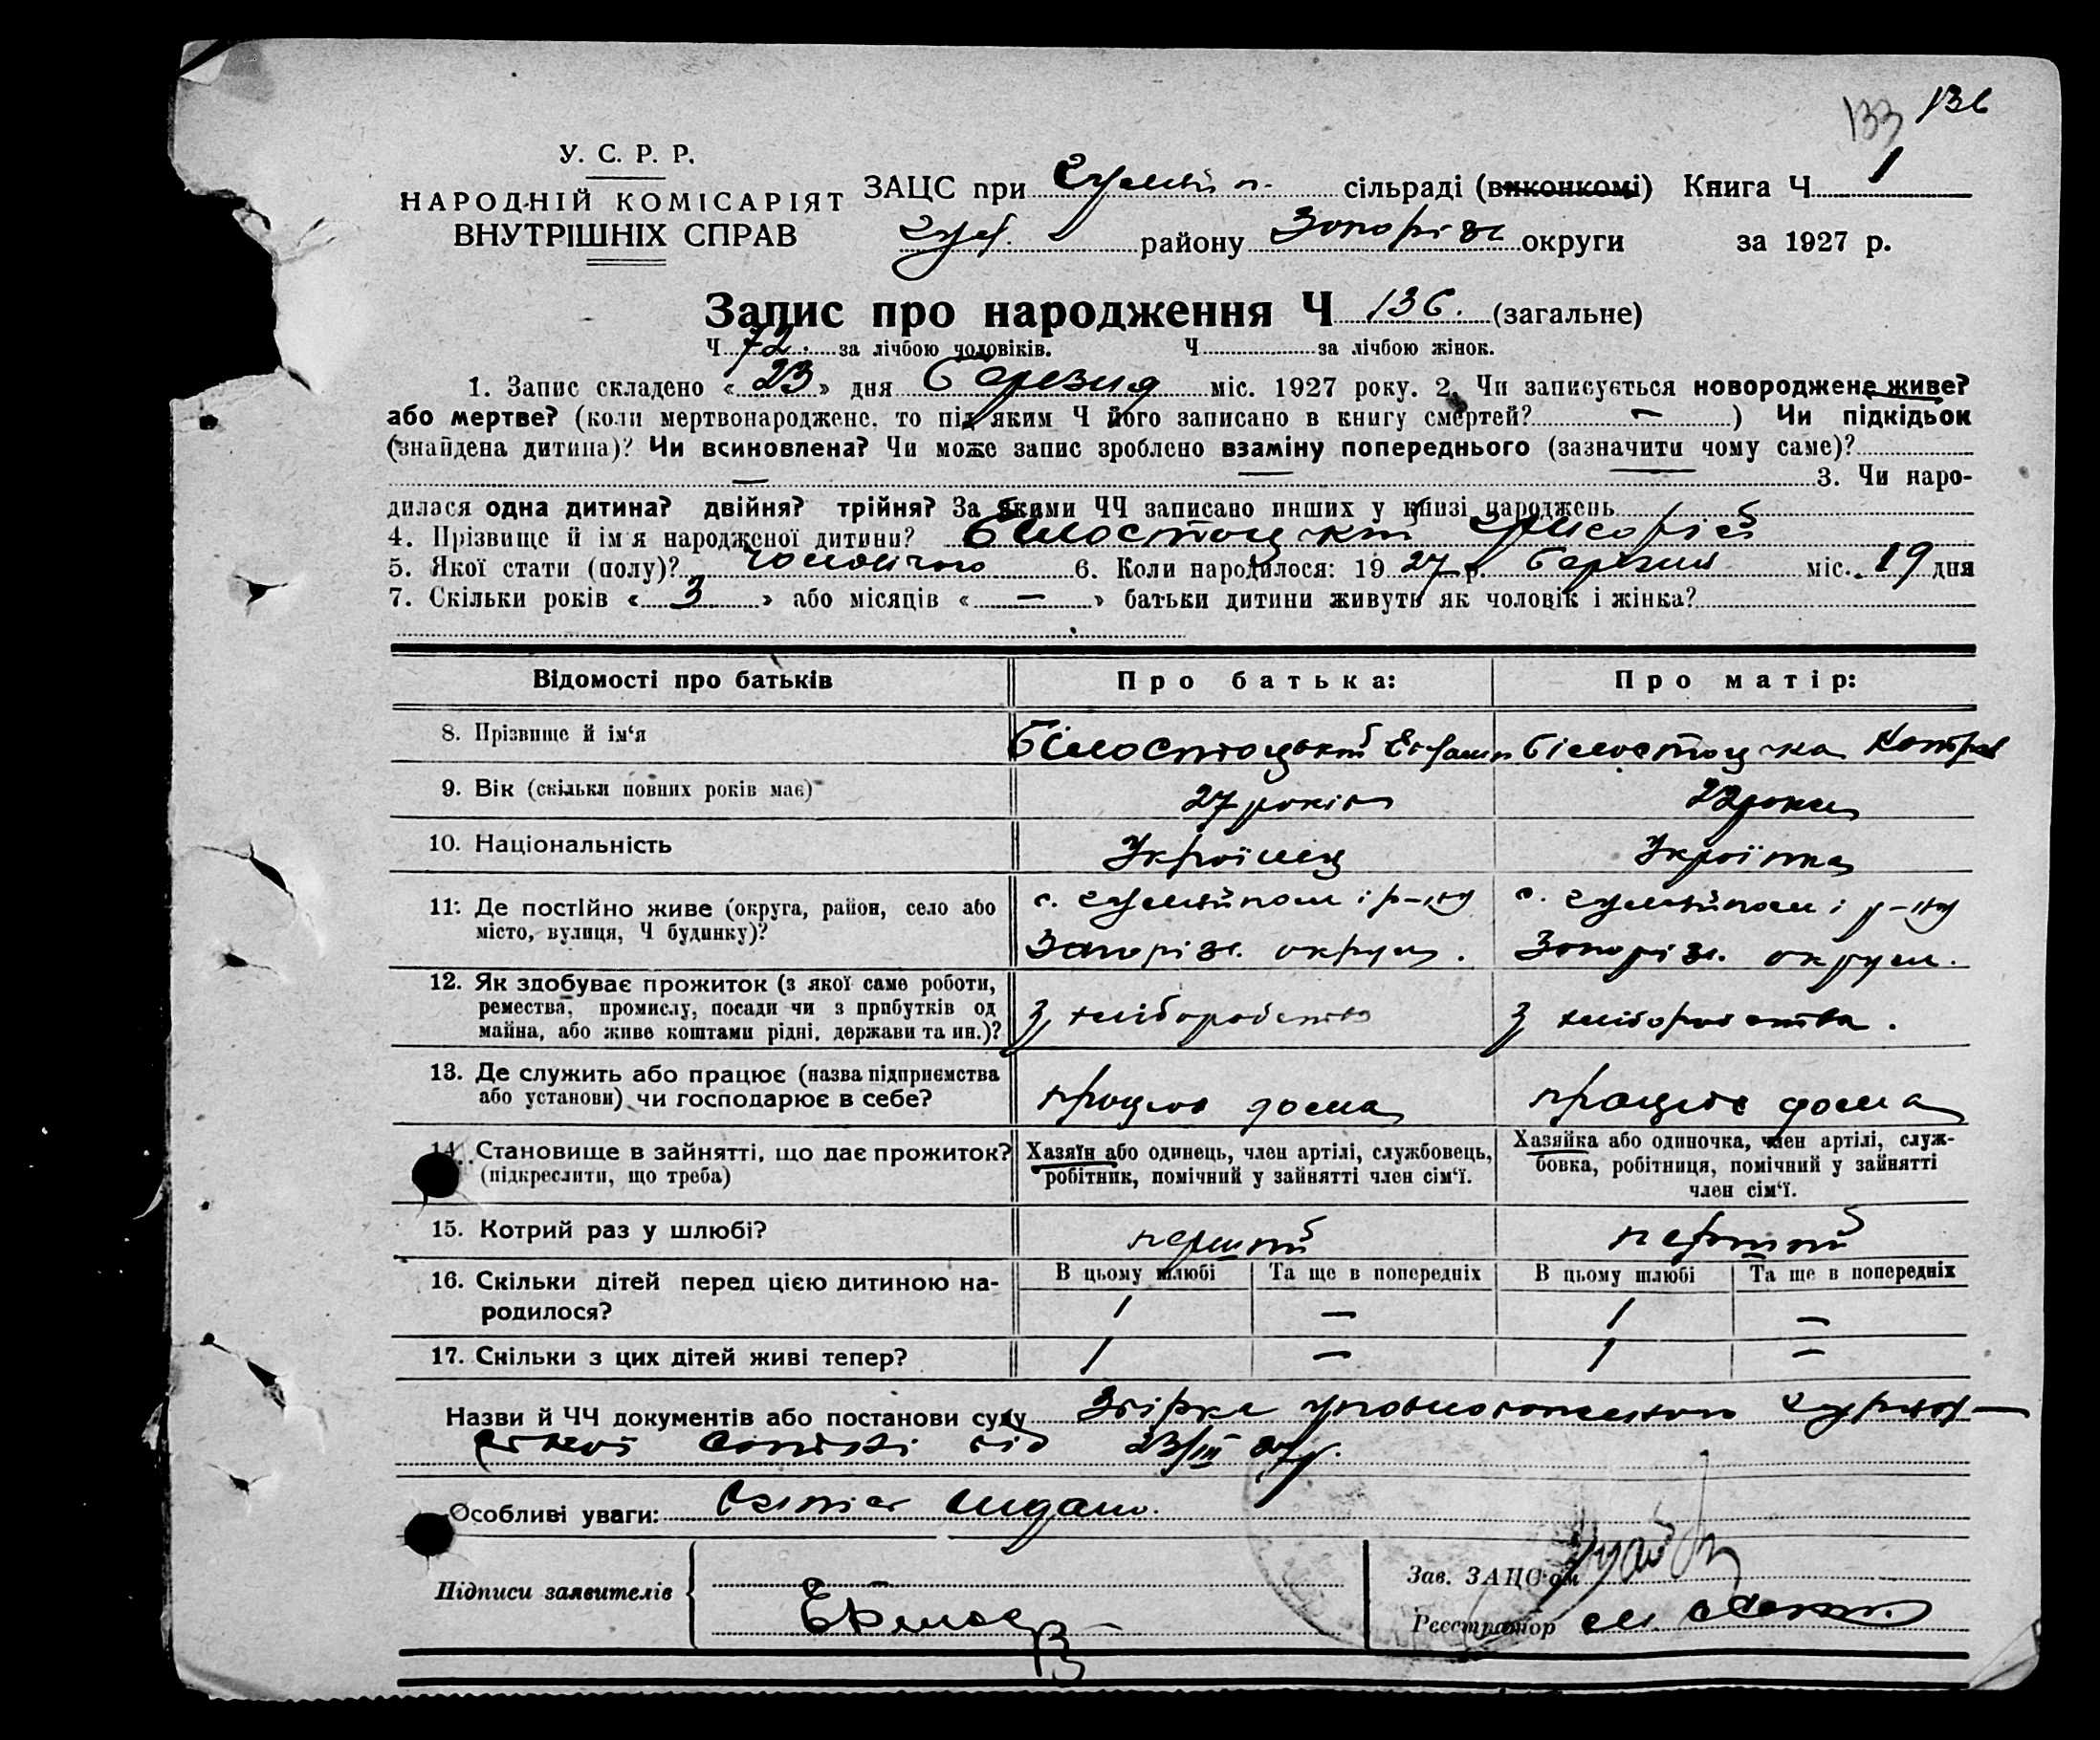 133 136
У. С. Р. Р.
НАРОДНІЙ КОМІСАРІЯТ
ВНУТРІШНІХ СПРАВ
ЗАЦС при Гуляйп. сільраді (виконкомі) Книга Ч 1
Гул. району Запоріж округи за 1927 р.
Запис про народження Ч 136. (загальне)
Ч 72. за лічбою чоловіків. Ч за лічбою жінок.
1. Запис складено «23» дня Березня міс. 1927 року. 2. Чи записується новороджене живе?
або мертве? (коли мертвонароджене, то під яким Ч його записано в книгу смертей? — ) Чи підкідьок
(знайдена дитина)? Чи всиновлена? Чи може запис зроблено взаміну попереднього (зазначити чому саме)?
— — — 3. Чи наро-
дилася одна дитина? двійня? трійня? За якими ЧЧ записано инших у книзі народжень
4. Прізвище й ім'я народженої дитини? Білостоцький Григорій
5. Якої стати (полу)? чоловічого 6. Коли народилося: 1927 р. березня міс. 19 дня
7. Скільки років «3» або місяців «—» батьки дитини живуть як чоловік і жінка?
Відомості про батьків Про батька: Про матір:
8. Прізвище й ім'я Білостоцький Білостоцька
9. Вік (скільки повних років має) 27 років 22 роки
10. Національність Українець Українка
11. Де постійно живе (округа, район, село або
місто, вулиця, Ч будинку)?
с. Гуляйполе і р-ну
Запоріж. округи.
с. Гуляйполе і р-ну
Запоріж. округи.
12. Як здобуває прожиток (з якої саме роботи,
ремества, промислу, посади чи з прибутків од
майна, або живе коштами рідні, держави та ин.)?
з хліборобства з хліборобства.
13. Де служить або працює (назва підприємства
або установи) чи господарює в себе?
працює дома працює дома
14. Становище в зайнятті, що дає прожиток?
(підкреслити, що треба)
Хазяїн або одинець, член артілі, службовець,
робітник, помічний у зайнятті член сім'ї.
Хазяйка або одиночка, член артілі, служ-
бовка, робітниця, помічний у зайнятті
член сім'ї.
15. Котрий раз у шлюбі? перший перший
16. Скільки дітей перед цією дитиною на-
родилося?
В цьому шлюбі Та ще в попередніх В цьому шлюбі Та ще в попередніх
1 — 1 —
17. Скільки з цих дітей живі тепер? 1 — 1 —
Назви й ЧЧ документів або постанови суду
від 23/III 27 р.
Особливі уваги: видано.
Підписи заявителів
Зав. ЗАЦС'ом
Реєстратор